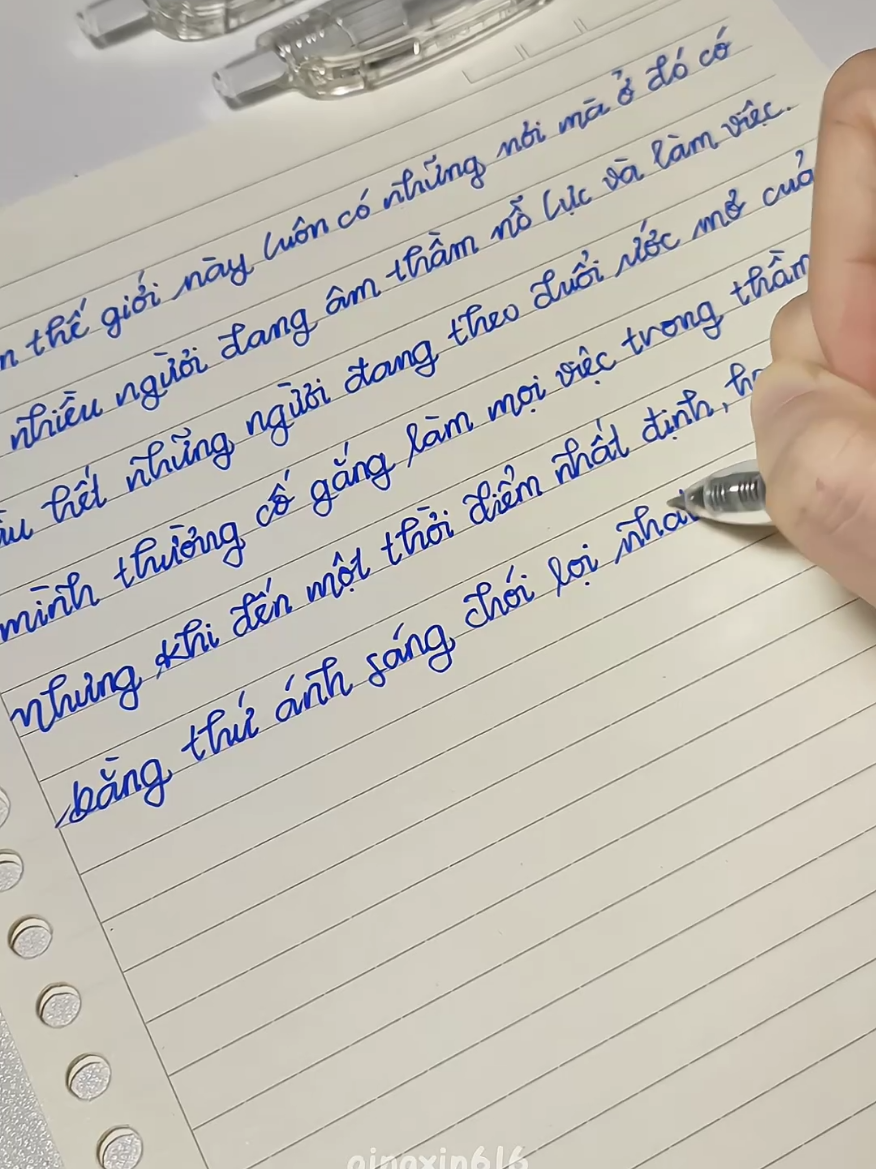 thế giới này luôn có những nơi mà ở đó có
nhiều người đang âm thầm nỗ lực và làm việc.
hết những người đang theo đuổi ước mơ của
mình thường cố gắng làm mọi việc trong thầm
nhưng khi đến một thời điểm nhất định,
bằng thứ ánh sáng chói lọi